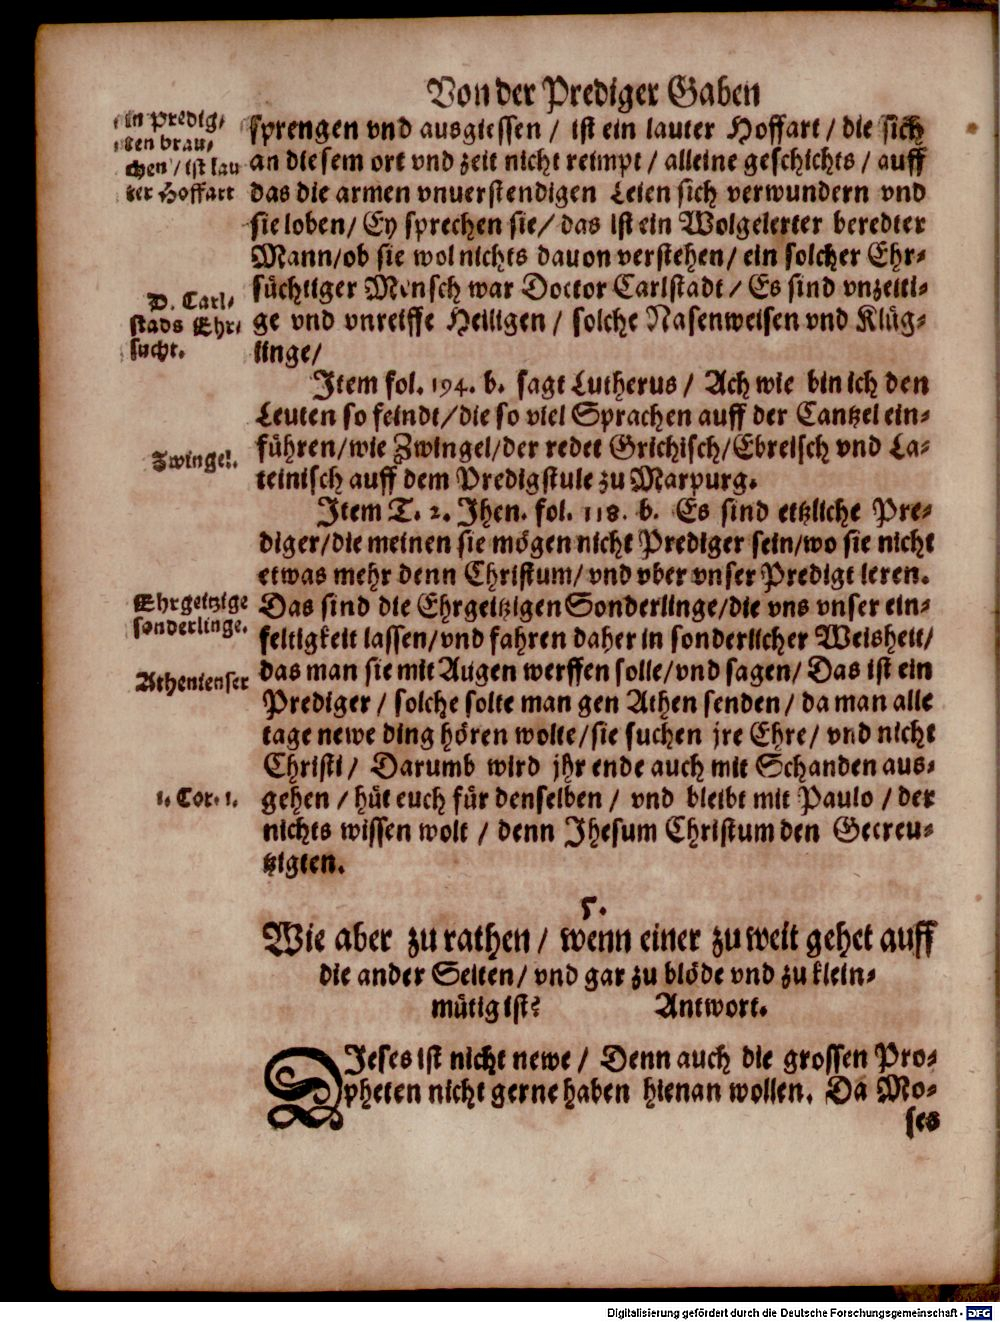 Von der Prediger Gaben
in predig,
ten brau,
chen / ist lau
ter Hoffart
sprengen vnd ausgiessen / ist ein lauter Hoffart / die sich
an diesem ort vnd zeit nicht reimpt / alleine geschichts / auff
das die armen vnuerstendigen Leien sich verwundern vnd
sie loben / Ey sprechen sie / das ist ein Wolgelerter beredter
Mann / ob sie wol nichts dauon verstehen / ein solcher Ehr-
süchtiger Mensch war Doctor Carlstadt / Es sind vnzeiti-
ge vnd vnreiffe Heiligen / solche Nasenweisen vnd Klüg-
linge /
D. Carl-
stads Ehr-
sucht.
Item fol. 194. b. sagt Lutherus / Ach wie bin ich den
Leuten so feindt / die so viel Sprachen auff der Cantzel ein-
führen / wie Zwingel / der redet Grichisch / Ebreisch vnd La-
teinisch auff dem Predigstule zu Marpurg.
Zwingel.
Item T. 2. Jhen. fol. 118. b. Es sind etzliche Pre-
diger / die meinen sie mögen nicht Prediger sein / wo sie nicht
etwas mehr denn Christum / vnd vber vnser Predigt leren.
Das sind die Ehrgeitzigen Sonderlinge / die vns vnser ein-
feltigkeit lassen / vnd fahren daher in sonderlicher Weisheit /
das man sie mit Augen werffen solle / vnd sagen / Das ist ein
Prediger / solche solte man gen Athen senden / da man alle
tage newe ding hören wolte / sie suchen jre Ehre / vnd nicht
Christi / Darumb wird jhr ende auch mit Schanden aus-
gehen / hüt euch für denselben / vnd bleibt mit Paulo / der
nichts wissen wolt / denn Jhesum Christum den Gecreu-
tzigten.
Ehrgeitzige
sonderlinge.
Athenienser
1. Cor. 1.
5.
Wie aber zu rathen / wenn einer zu weit gehet auff
die ander Seiten / vnd gar zu blöde vnd zu klein-
mütig ist? Antwort.
DJeses ist nicht newe / Denn auch die grossen Pro-
pheten nicht gerne haben hienan wollen. Da Mo-
ses
Digitalisierung gefördert durch die Deutsche Forschungsgemeinschaft - DFG